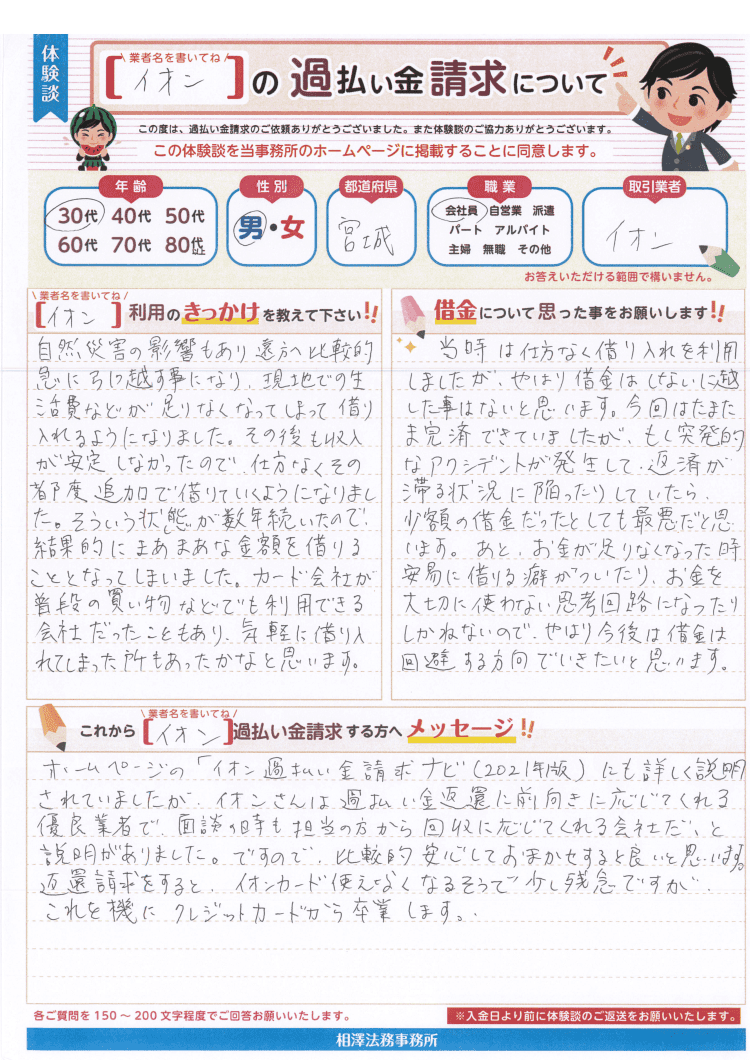 体験談
\ 業者名を書いてね /
[イオン]の 過払い金請求について
この度は、過払い金請求のご依頼ありがとうございました。また体験談のご協力ありがとうございます。
この体験談を当事務所のホームページに掲載することに同意します。
年齢 性別 都道府県 職業 取引業者
30代 40代 50代
60代 70代 80代以上
男・女
宮城
会社員 自営業 派遣
パート アルバイト
主婦 無職 その他
イオン
お答えいただける範囲で構いません。
\ 業者名を書いてね /
[イオン]利用のきっかけを教えて下さい!!
自然災害の影響もあり遠方へ比較的
急に引っ越す事になり、現地での生
活費などが足りなくなってしまって借り
入れるようになりました。その後も収入
が安定しなかったので、仕方なくその
都度追加で借りていくようになりまし
た。そういう状態が数年続いたので
結果的にまあまあな金額を借りる
こととなってしまいました。カード会社が
普段の買い物などでも利用できる
会社だったこともあり、気軽に借り入
れてしまった所もあったかなと思います。
借金について思った事をお願いします!!
当時は仕方なく借り入れを利用
しましたが、やはり借金はしないに越
した事はないと思います。今回はたまた
ま完済できていましたが、もし突発的
なアクシデントが発生して、返済が
滞る状況に陥ったりしていたら、
少額の借金だったとしても最悪だと思
います。あと、お金が足りなくなった時
安易に借りる癖がついたり、お金を
大切に使わない思考回路になったり
しかねないので、やはり今後は借金は
回避する方向でいきたいと思います。
\ 業者名を書いてね /
これから[イオン]過払い金請求する方へメッセージ!!
ホームページの「イオン過払い金請求ナビ(2021年版)にも詳しく説明
されていましたが、イオンさんは過払い金返還に前向きに応じてくれる
優良業者で、面談の時も担当の方から回収に応じてくれる会社だ、と
説明がありました。ですので、比較的安心しておまかせすると良いと思います。
返還請求をすると、イオンカード使えなくなるそうで少し残念ですが、
これを機にクレジットカードから卒業します。
各ご質問を150～200文字程度でご回答お願いいたします。
※入金日より前に体験談のご返送をお願いいたします。
相澤法務事務所